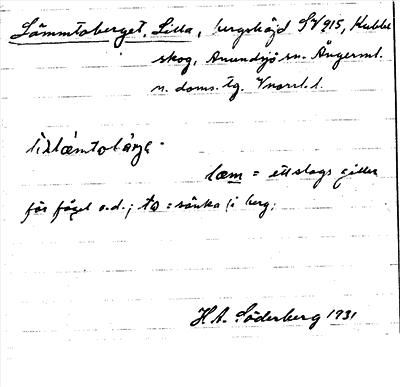 Lämmtoberget, Lilla, bergshöjd SV 915, Kubbe
skog, Anundsjö sn. Ångerml.
n. doms. tg. Vnorrl. l.
læm = ett slags giller
för fågel o.d.; to = sänka i berg.
H.A. Söderberg 1931